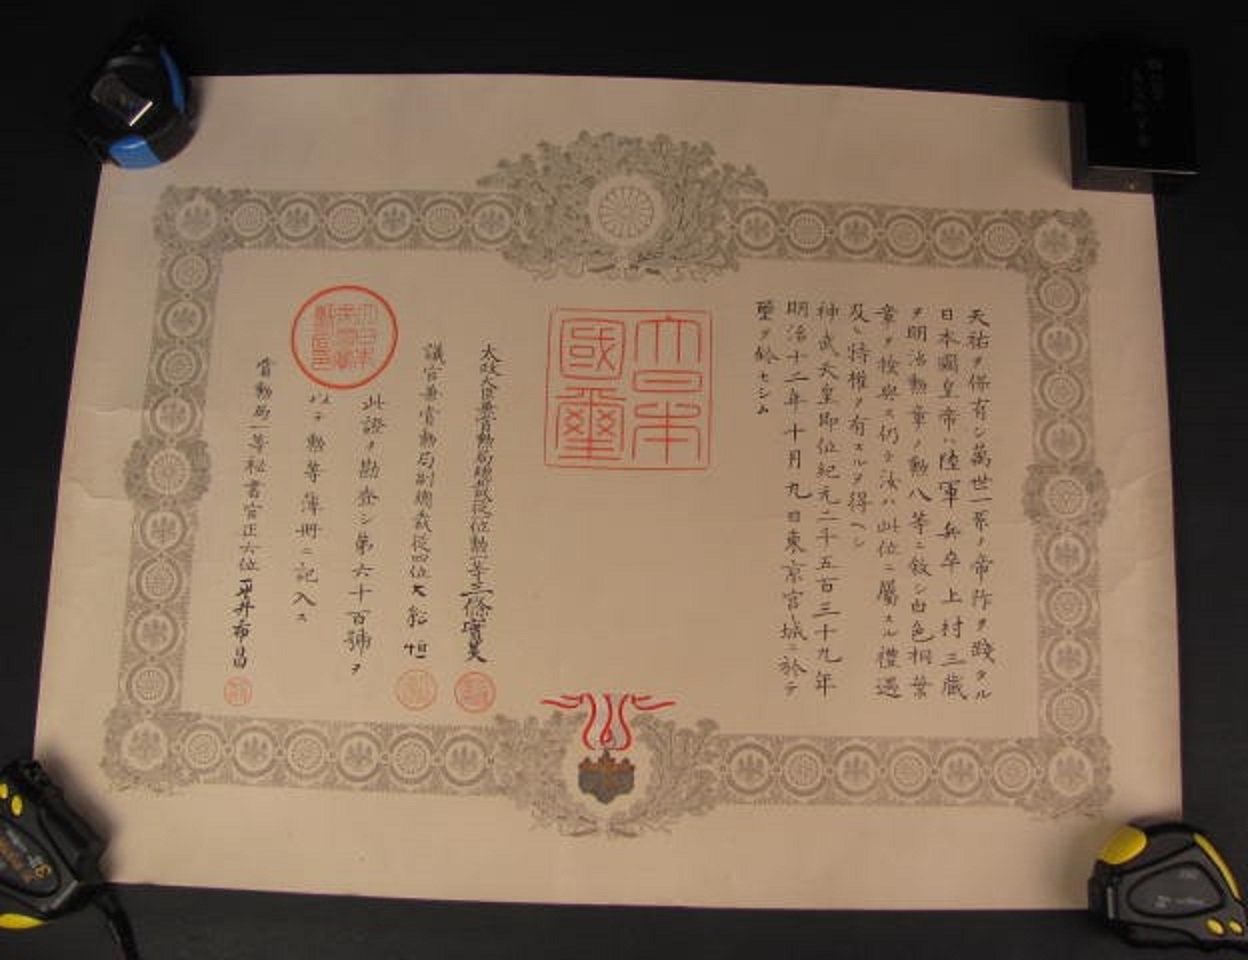 天祐ヲ保有シ萬世一系ノ帝阼ヲ踐タル
日本國皇帝ハ陸軍兵卒上村三藏
ヲ明治勲章ノ勲八等ニ敍シ白色桐葉
章ヲ授與ス仍テ汝ハ此位ニ屬スル禮遇
及ヒ特權ヲ有スルヲ得ヘシ
神武天皇即位紀元二千五百三十九年
明治十二年十月九日東京宮城ニ於テ
璽ヲ鈐セシム
大日本
國璽
太政大臣兼賞勲局總裁從一位勲一等三條實美
議官兼賞勲局副總裁從四位大給恒
此證ヲ勘査シ第六十百號ヲ
以テ勲等簿冊ニ記入ス
賞勲局一等秘書官正六位平井希昌